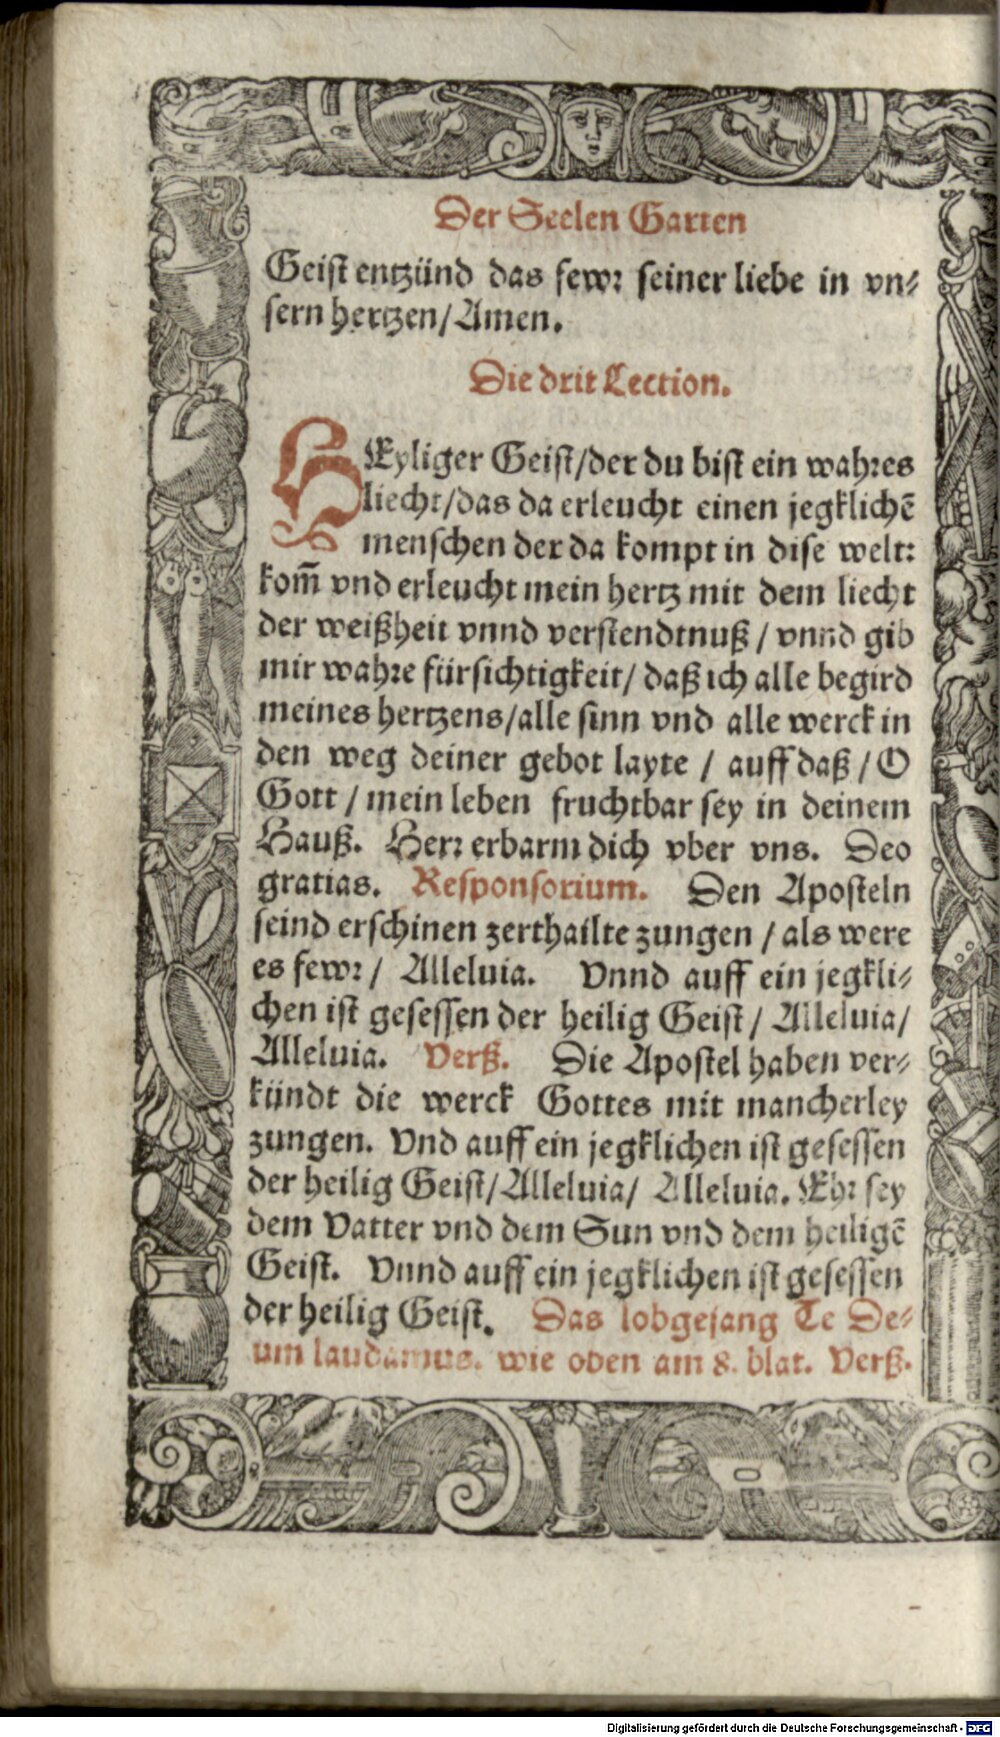 Der Seelen Garten
Geist entzünd das fewr seiner liebe in vn⸗
sern hertzen/Amen.
Die drit Lection.
HEyliger Geist/der du bist ein wahres
liecht/das da erleucht einen jegklichē
menschen der da kompt in dise welt:
kom̄ vnd erleucht mein hertz mit dem liecht
der weißheit vnnd verstendtnuß / vnnd gib
mir wahre fürsichtigkeit/ daß ich alle begird
meines hertzens/alle sinn vnd alle werck in
den weg deiner gebot layte / auff daß / O
Gott / mein leben fruchtbar sey in deinem
Hauß. Herr erbarm dich vber vns. Deo
gratias. Responsorium. Den Aposteln
seind erschinen zerthailte zungen / als were
es fewr / Alleluia. Vnnd auff ein jegkli⸗
chen ist gesessen der heilig Geist / Alleluia/
Alleluia. Verß. Die Apostel haben ver⸗
kündt die werck Gottes mit mancherley
zungen. Vnd auff ein jegklichen ist gesessen
der heilig Geist/Alleluia/ Alleluia. Ehr sey
dem Vatter vnd dem Sun vnd dem heiligē
Geist. Vnnd auff ein jegklichen ist gesessen
der heilig Geist. Das lobgesang Te De⸗
um laudamus. wie oben am 8. blat. Verß.
Digitalisierung gefördert durch die Deutsche Forschungsgemeinschaft - DFG